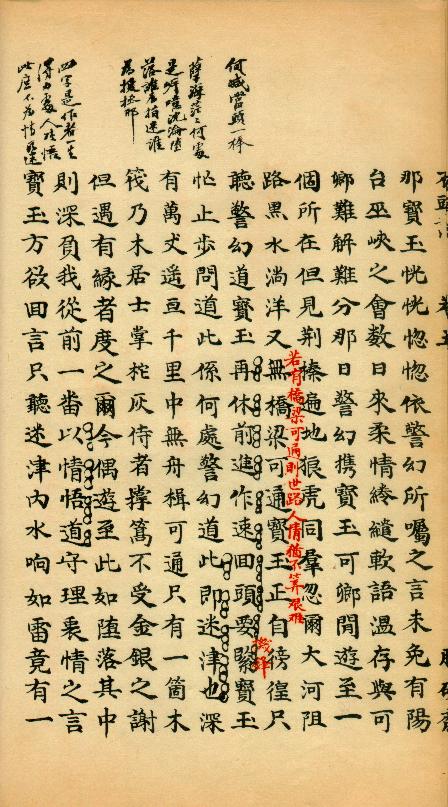 何減當頭一棒
四字是作者一生
得力處人人悟
此庶不為情所迷
那寶玉恍恍惚惚依警幻所囑之言未免有陽
台巫峽之會數日來柔情綣繾軟語溫存與可
卿難解難分那日警幻携寶玉可卿閒遊至一
個所在但見荊榛遍地狼虎同羣忽爾大河阻
若有橋梁可通則世路人情猶不算艱難
路黒水淌洋又無橋梁可通寶玉正自徬徨只
機鋒
聽警幻道寶玉再休前進作速回頭要緊寶玉
忙止步問道此係何處警幻道此即迷津也深
有萬丈遥亘千里中無舟楫可通只有一箇木
筏乃木居士掌柁灰侍者撑篙不受金銀之謝
但遇有緣者度之爾今偶遊至此如堕落其中
則深負我從前一畨以情悟道守理衷情之言
寶玉方欲回言只聽迷津内水响如雷竟有一